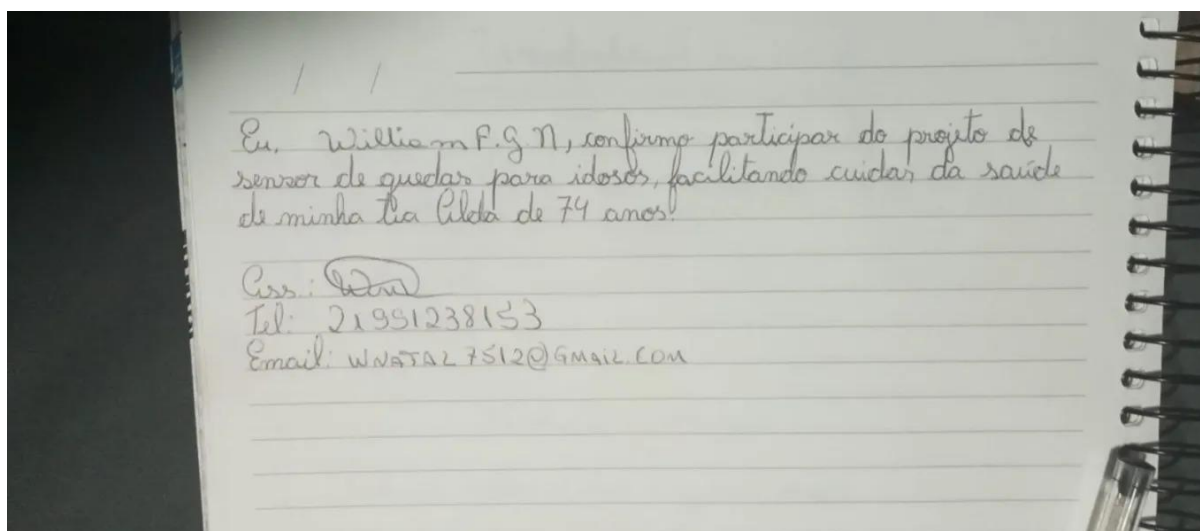 / /
Eu, William F.G N, confirmo participar do projeto de
sensor de quedas para idosos, facilitando cuidar da saúde
de minha tia de 74 anos!
Ass:
Tel: 21991238153
Email: WNATAL7512@GMAIL.COM